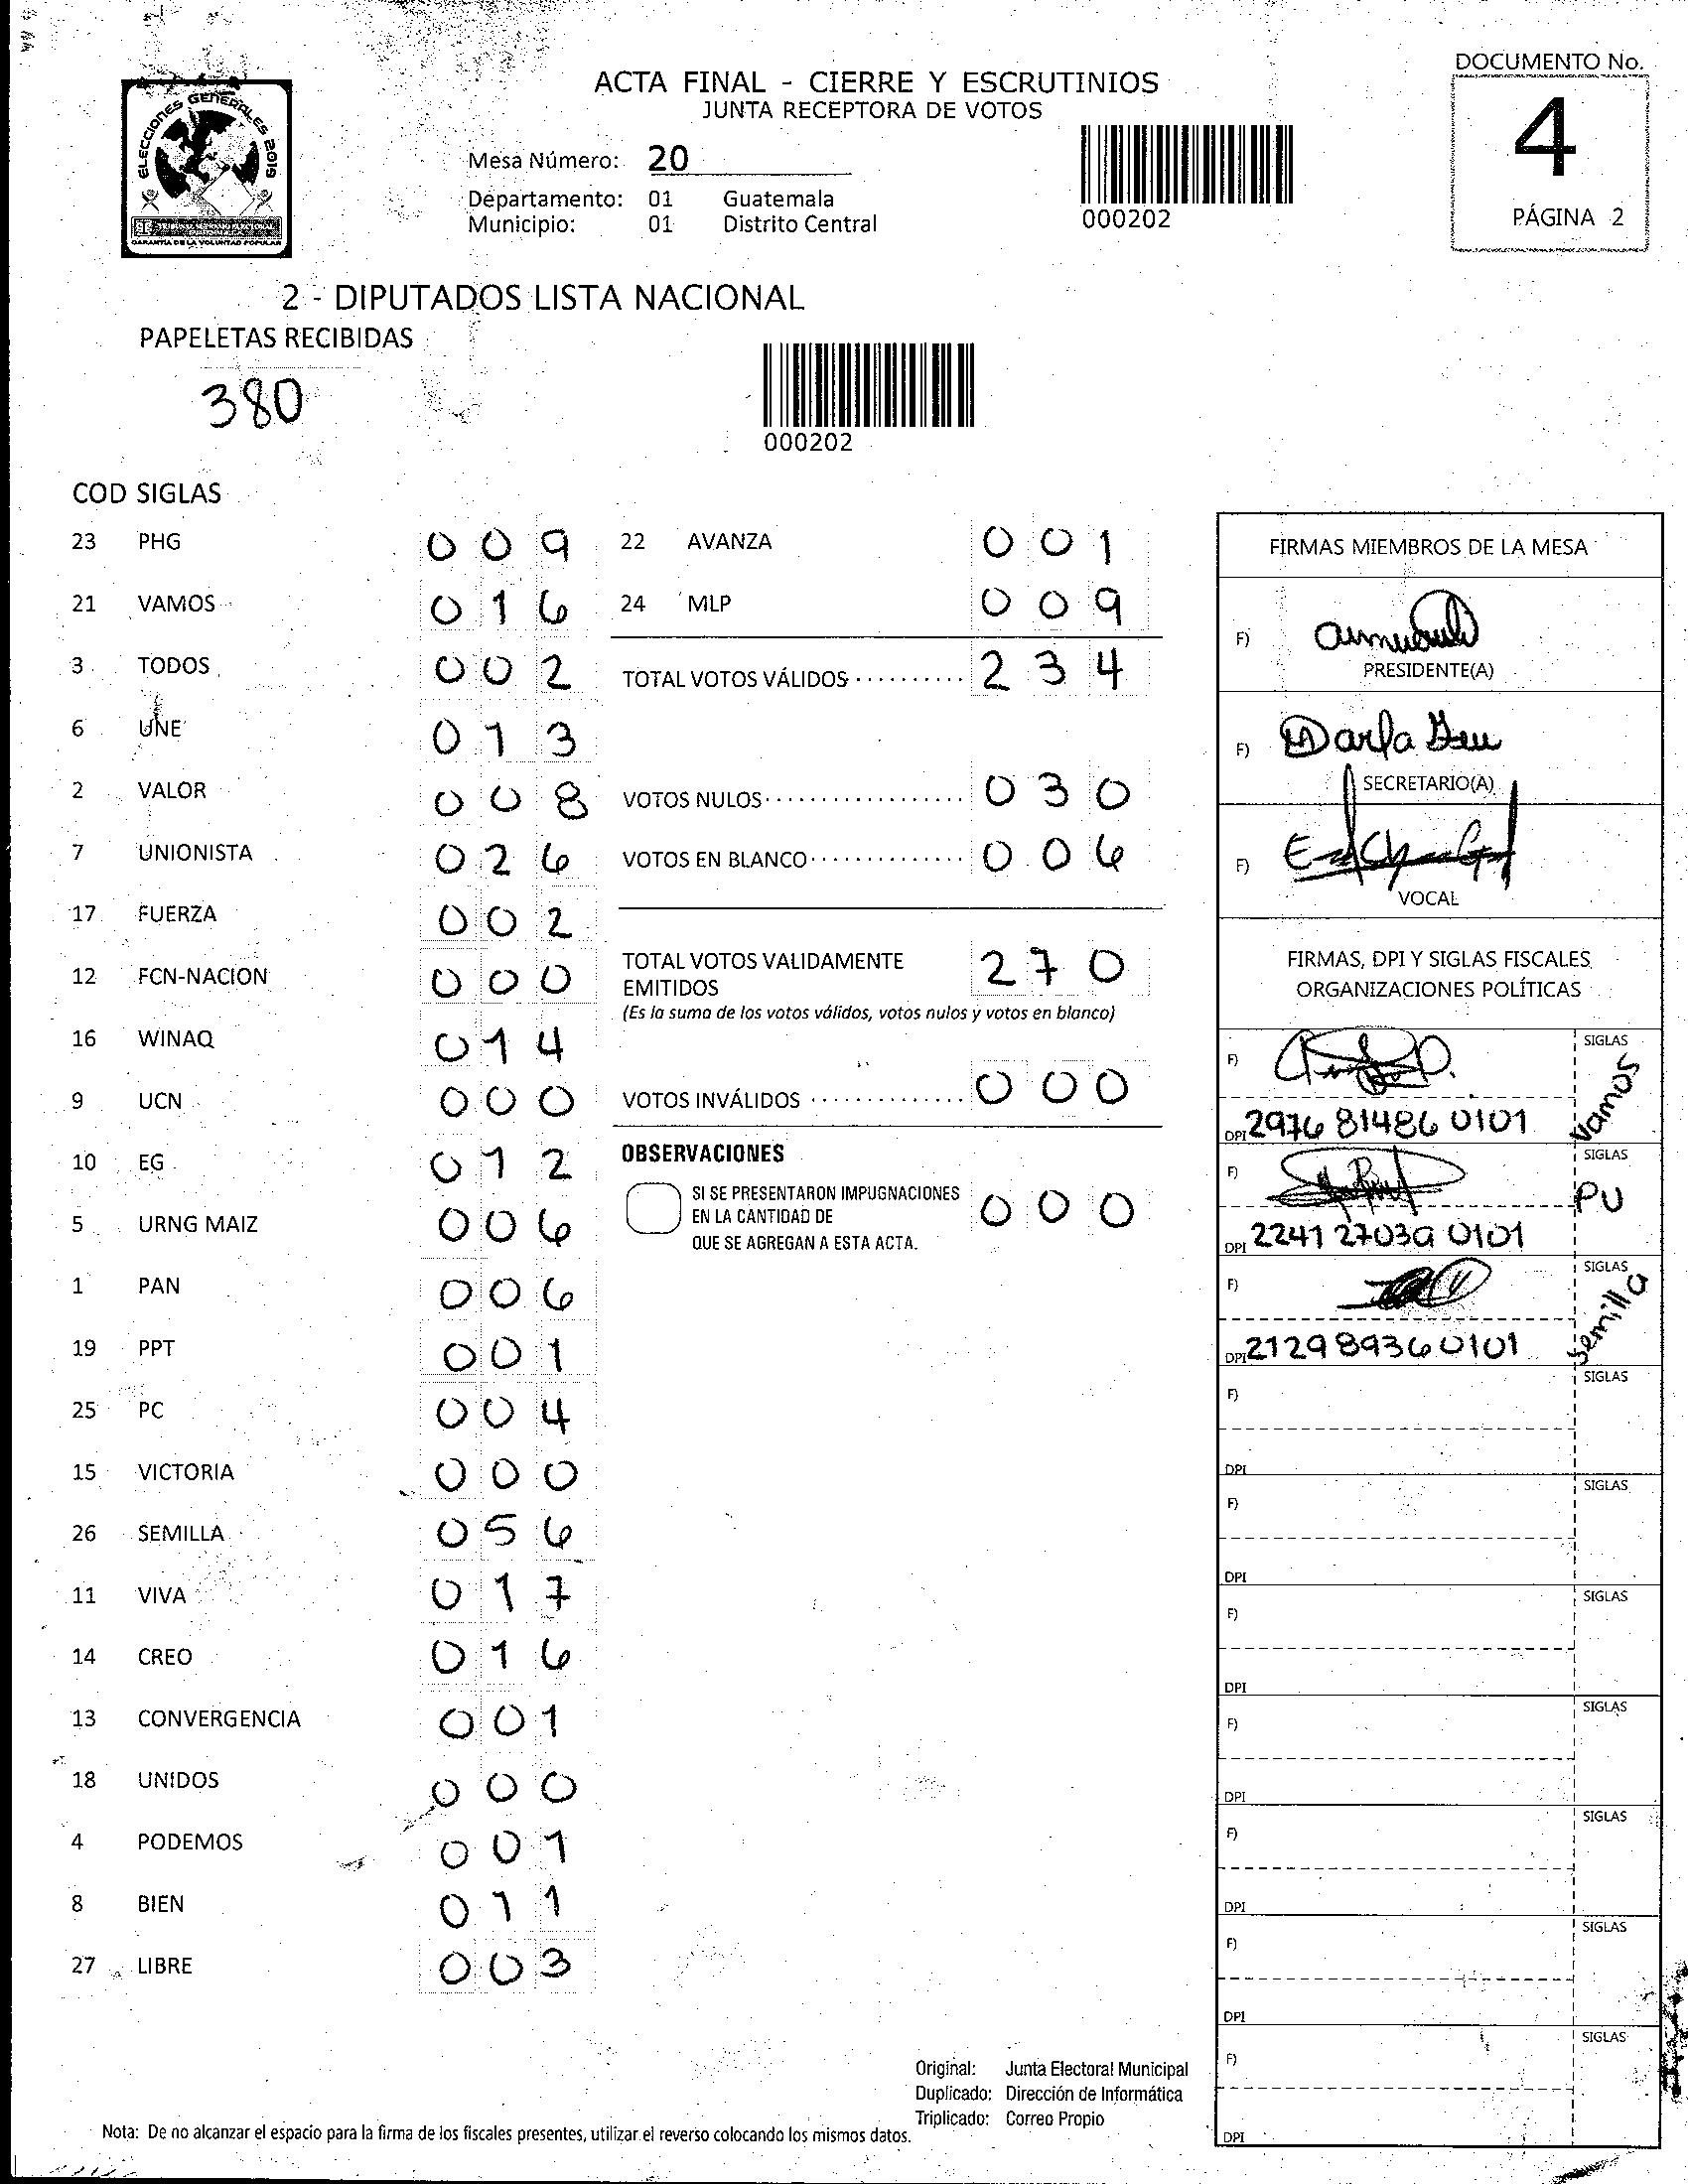 ELECCIONES GENERALES 2019
TRIBUNAL SUPREMO ELECTORAL
GARANTÍA DE LA VOLUNTAD POPULAR
ACTA FINAL - CIERRE Y ESCRUTINIOS
JUNTA RECEPTORA DE VOTOS
Mesa Número: 20
Departamento: 01 Guatemala
Municipio: 01 Distrito Central
000202
DOCUMENTO No.
4
PÁGINA 2
2 - DIPUTADOS LISTA NACIONAL
PAPELETAS RECIBIDAS
380
000202
COD SIGLAS
23 PHG 009
21 VAMOS 016
3 TODOS 002
6 UNE 013
2 VALOR 008
7 UNIONISTA 026
17 FUERZA 002
12 FCN-NACION 000
16 WINAQ 014
9 UCN 000
10 EG 012
5 URNG MAIZ 006
1 PAN 006
19 PPT 001
25 PC 004
15 VICTORIA 000
26 SEMILLA 056
11 VIVA 017
14 CREO 016
13 CONVERGENCIA 001
18 UNIDOS 000
4 PODEMOS 001
8 BIEN 011
27 LIBRE 003
22 AVANZA 001
24 MLP 009
TOTAL VOTOS VÁLIDOS 234
VOTOS NULOS 030
VOTOS EN BLANCO 006
TOTAL VOTOS VALIDAMENTE
EMITIDOS 270
(Es la suma de los votos válidos, votos nulos y votos en blanco)
VOTOS INVÁLIDOS 000
OBSERVACIONES
SI SE PRESENTARON IMPUGNACIONES
EN LA CANTIDAD DE 000
QUE SE AGREGAN A ESTA ACTA.
FIRMAS MIEMBROS DE LA MESA
F)
PRESIDENTE(A)
F) Darla
SECRETARIO(A)
F)
VOCAL
FIRMAS, DPI Y SIGLAS FISCALES
ORGANIZACIONES POLÍTICAS
F) SIGLAS
DPI 2976 81486 0101 Vamos
F) SIGLAS
PU
DPI 2241 27039 0101
F) SIGLAS
DPI 2129 89360101 Semilla
F) SIGLAS
DPI
F) SIGLAS
DPI
F) SIGLAS
DPI
F) SIGLAS
DPI
F) SIGLAS
DPI
F) SIGLAS
DPI
F) SIGLAS
DPI
Original: Junta Electoral Municipal
Duplicado: Dirección de Informática
Triplicado: Correo Propio
Nota: De no alcanzar el espacio para la firma de los fiscales presentes, utilizar el reverso colocando los mismos datos.